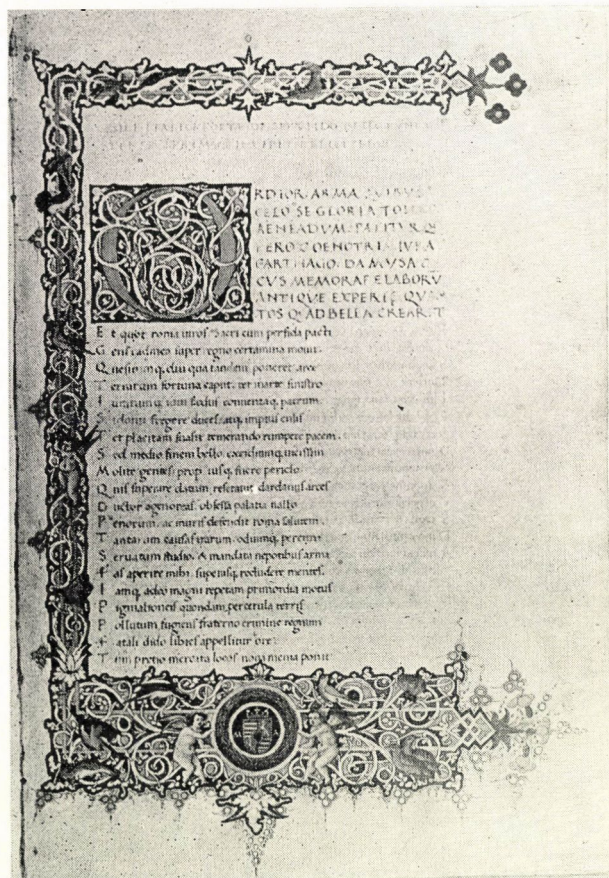 ORDIOR ARMA QUIBUS
CELO SE GLORIA TOLL
AENEADUM PATITUR Q
FERO OENOTRI IURA
CARTHAGO DA MUSA
CUS MEMORARE LABORU
ANTIQUE EXPERIE QU
TOS Q AD BELLA CREARIT
Et quot roma uiros sacri cum perfida pacti
Gens cadmea super regno certamina mouit
Quesitumq, diu qua tandem poneret arce
Terrarum fortuna caput ter marte sinistro
Iuratumq, iouis fedus conuentaq, patrum
Sidonii fregere duces atq, impius ensis
Tet placitam suasit temerando rumpere pacem
Sed medio finem bello excidiumq, uicissim
Molite gentes propiusq, fuere periclo
Quis superare datum reserauit dardanus arces
Ductor agenoreas obsessa palatia uallo
Penorum ac muris defendit roma salutem
Tantarum causas irarum odiumq, perenni
Seruatum studio & mandata nepotibus arma
Fas aperire mihi superasq, recludere mentes
Iamq, adeo magni repetam primordia motus
Pigmalioneis quondam per cerula terris
Pollutum fugiens fraterno crimine regnum
Fatali dido libies appellitur ore
Tum pretio mercata locos noua menia ponit
M A